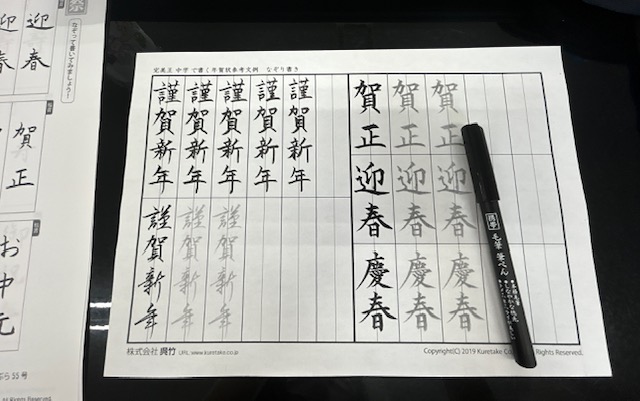 完美王 中字 で書く年賀状参考文例　なぞり書き
賀正 賀正 賀正
迎春 迎春 迎春
慶春 慶春 慶春
謹賀新年 謹賀新年 謹賀新年 謹賀新年 謹賀新年
謹賀新年 謹賀新年 謹賀新年
株式会社 呉竹 URL: www.kuretake.co.jp
Copyright(C) 2019 Kuretake Co Rights Reserved.
携帯 毛筆 筆ぺん
なぞって書いてみましょう!
迎春
賀正
お中元
55号